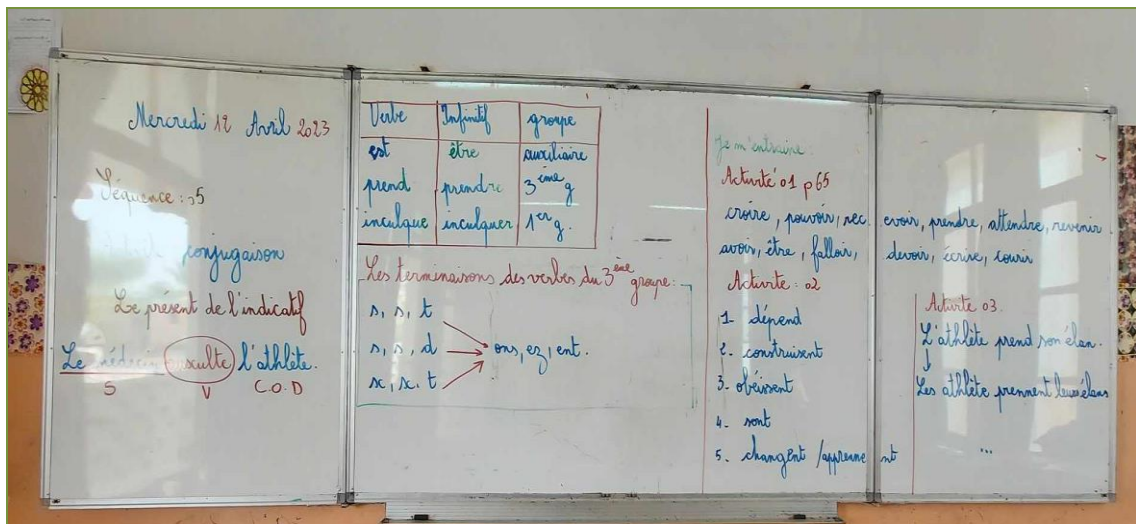 Mercredi 12 Avril 2023
Séquence : 5
conjugaison
Le présent de l'indicatif
Le médecin consulte l'athlète.
S V C.O.D
Verbe Infinitif groupe
est être auxiliaire
prend prendre 3ème g
inculque inculquer 1er g.
Les terminaisons des verbes du 3ème groupe :
s, s, t
s, s, d ons, ez, ent.
x, x, t
Je m'entraine :
Activité 01 p 65
croire, pouvoir, recevoir, prendre, attendre, revenir
avoir, être, falloir, devoir, écrire, courir
Activite : 02
1- dépend
2- construisent
3- obéissent
4- sont
5- changent / apprennent
Activite 03.
L'athlète prend son élan.
↓
Les athlète prennent leurs élans
...